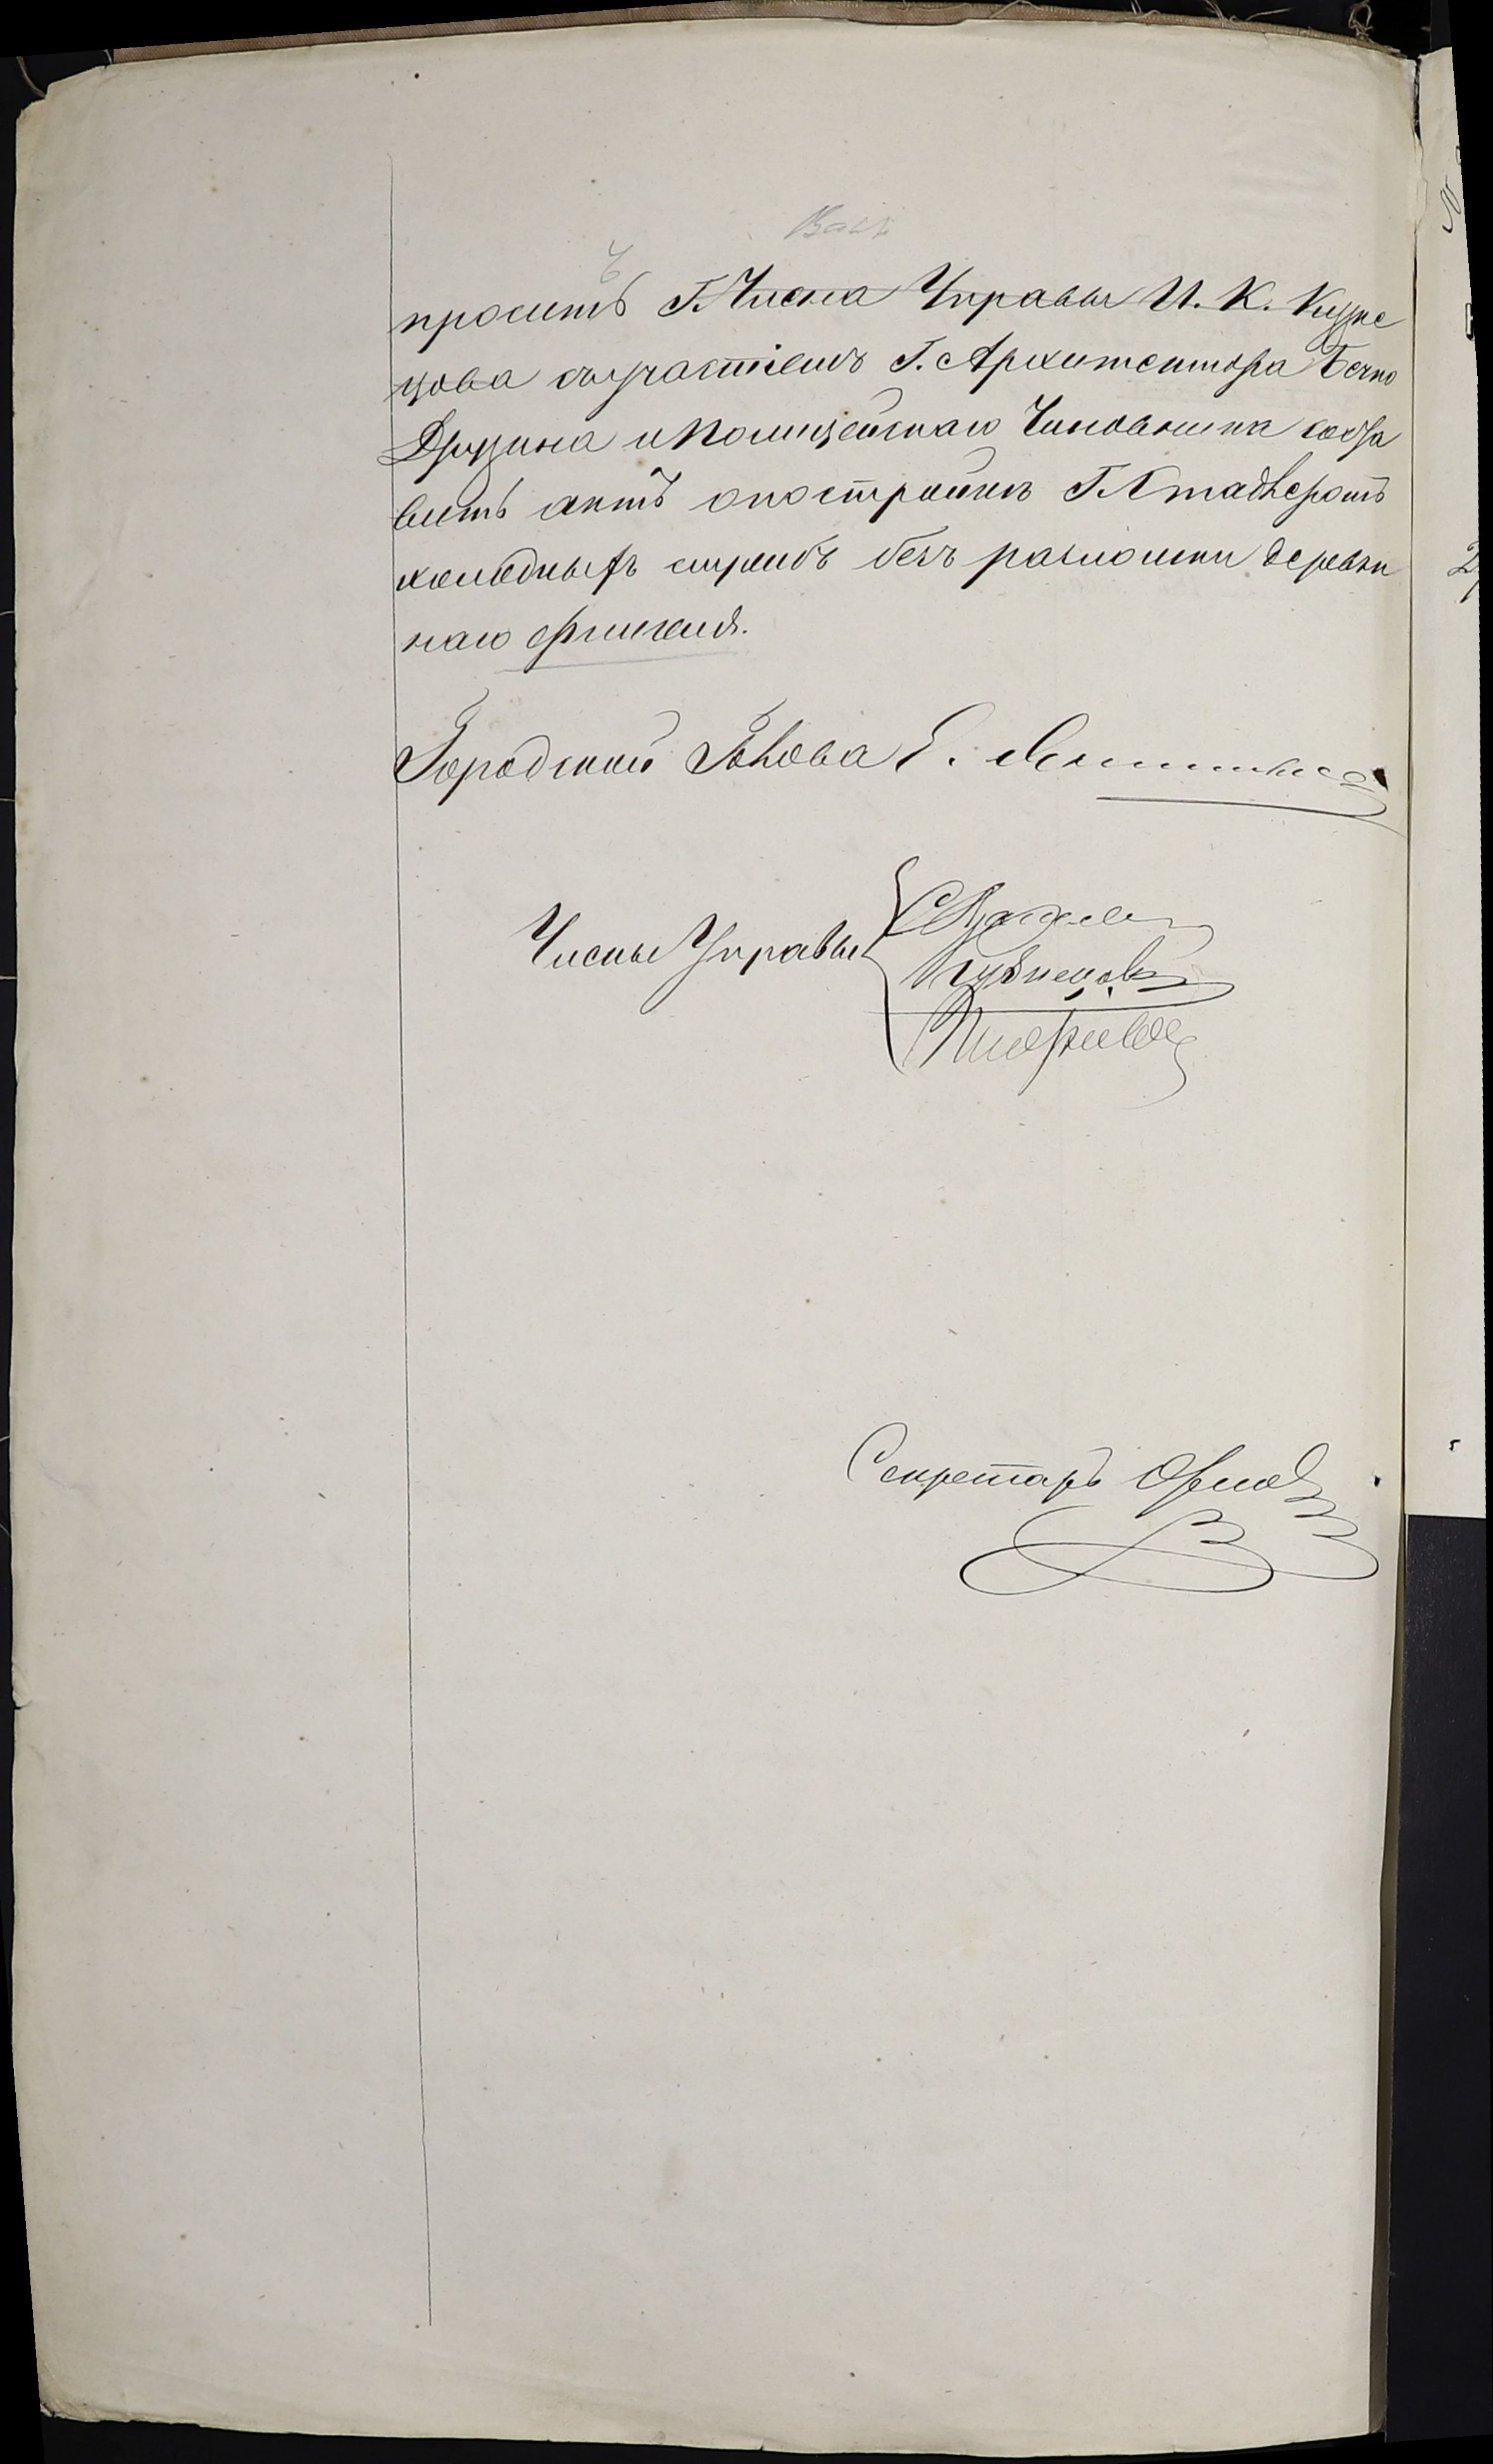 Васъ
проситъ Г. Члена Управы И. К. Кузне
цова съ участіемъ Г. Архитектора Бечко
Друзина и Полицейскаго Чиновника соста
вить актъ о постройкѣ Г.
холодныхъ службъ безъ разломки деревян
наго
Городской Голова Е.
Члены Управы
Кузнецовъ
Секретарь Орлов